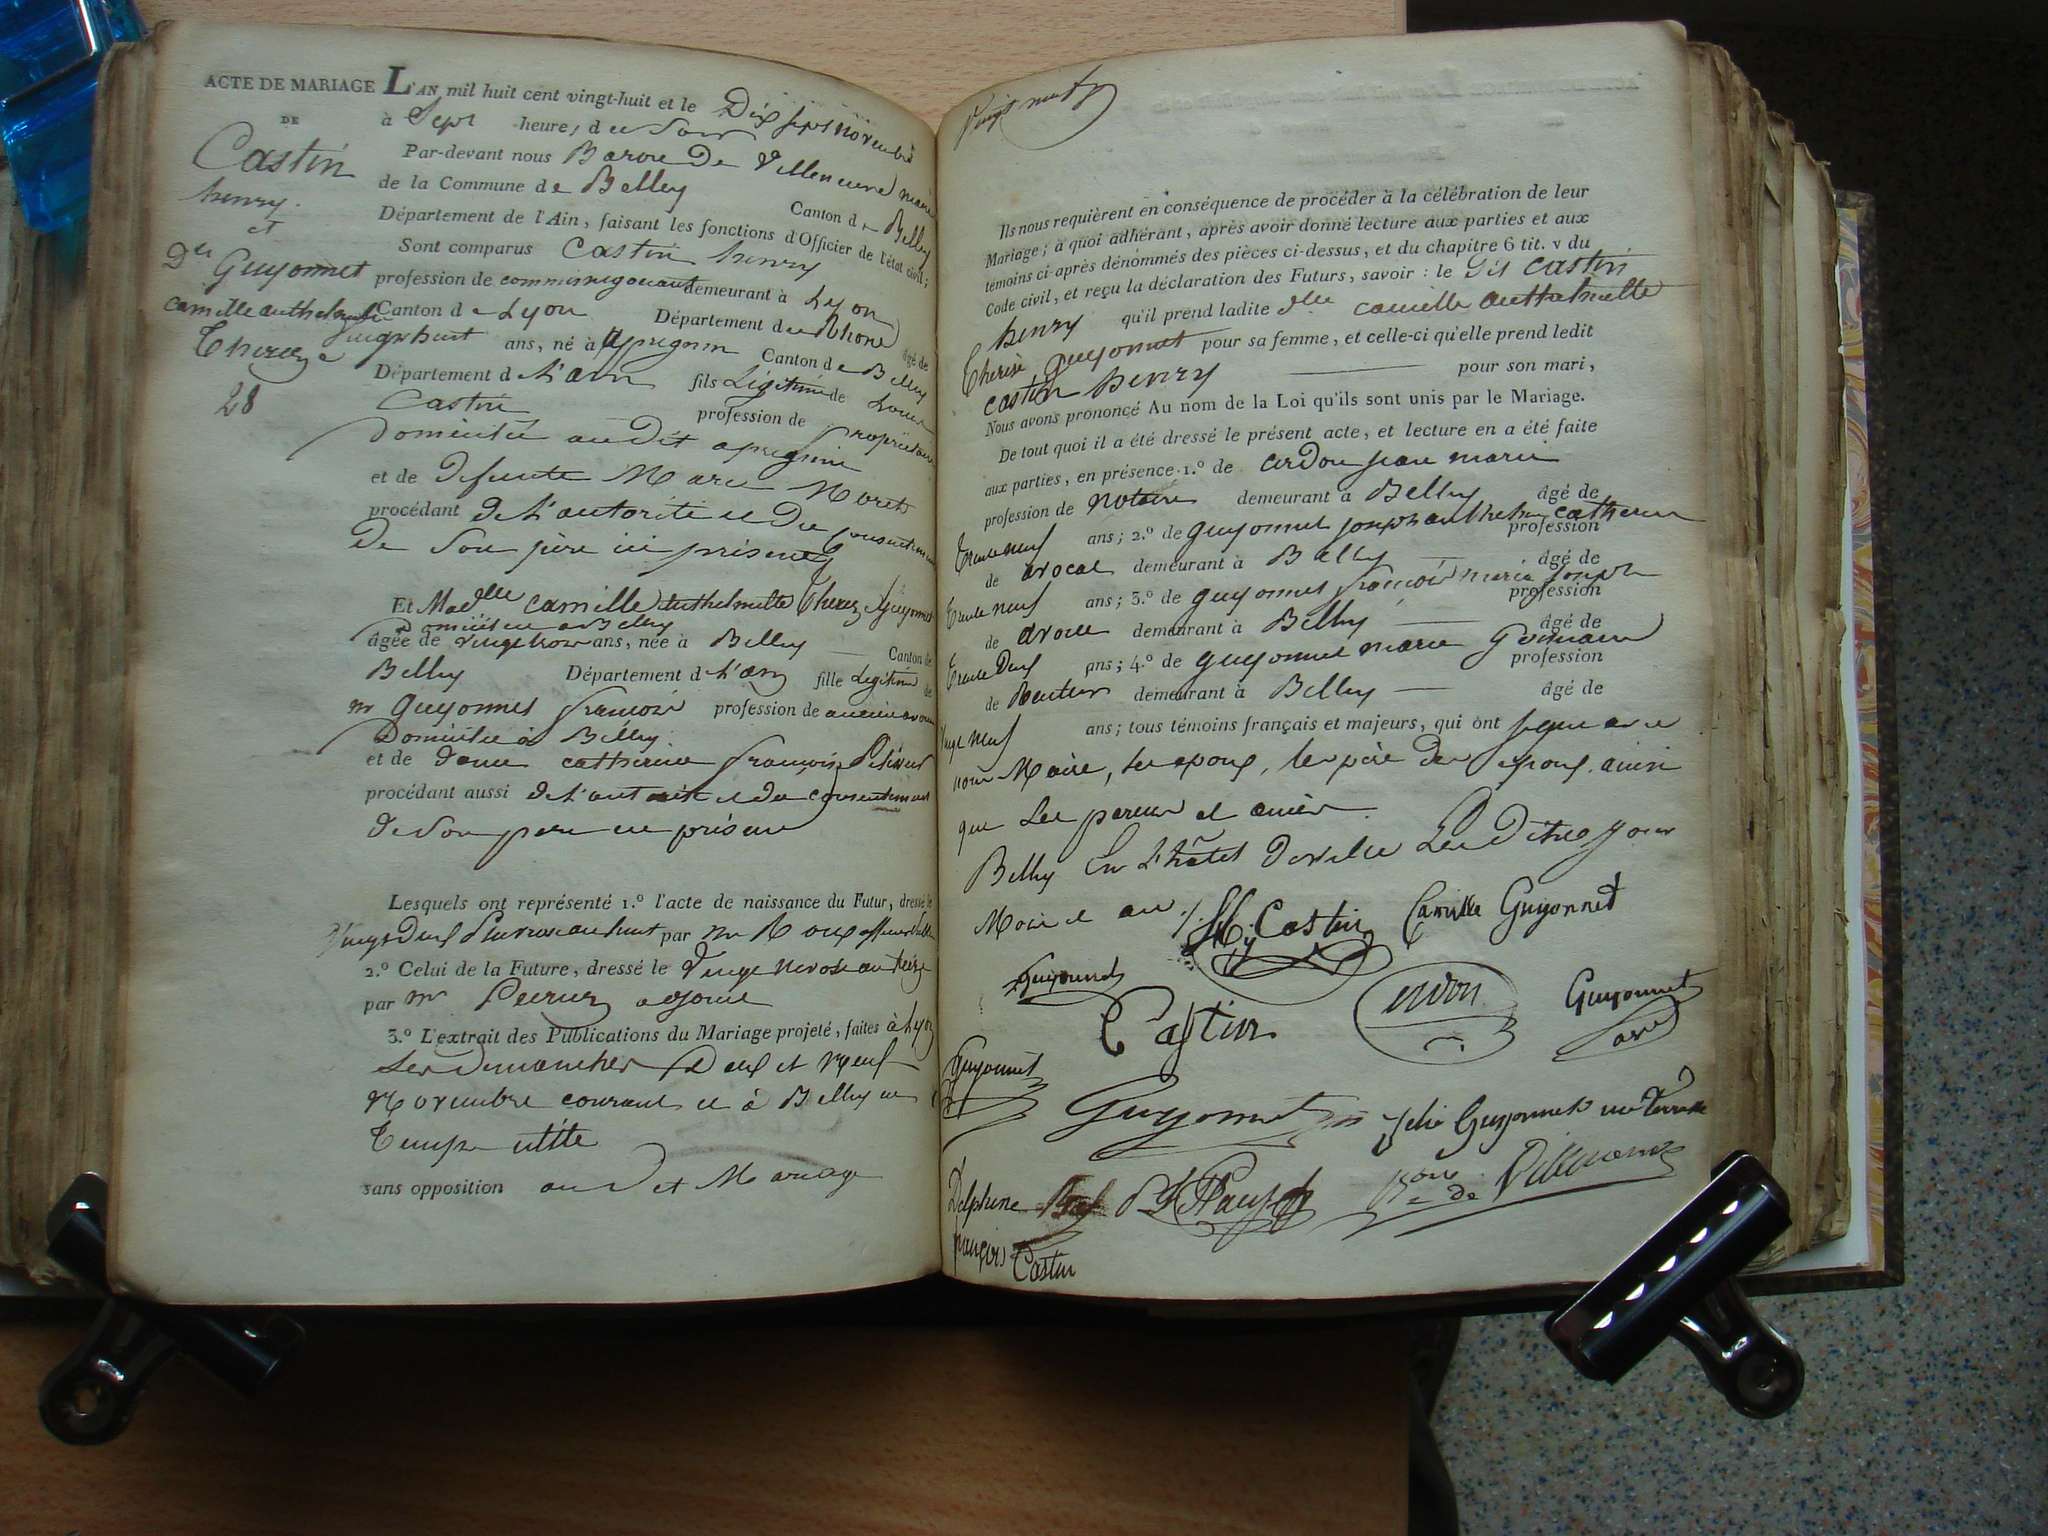 ACTE DE MARIAGE L'AN mil huit cent vingt-huit et le Dix sept novembre
DE
à Sept heures du Soir
Castin
henry.
et
Dlle Guyonnet
camille anthelmette
Thereze
28
Par-devant nous Baron De Villeneuve maire
de la Commune de Belley Canton de Belley
Département de l'Ain, faisant les fonctions d'Officier de l'état civil;
Sont comparus Castin henry
profession de commis negociant demeurant à Lyon
Canton de Lyon Département du Rhone âgé de
vingt huit ans, né à Canton de Belley
Département de L'ain fils Légitime de
Castin profession de propriétaire
Domicilié au dit
et de Defunte Marie
procédant de L'autorité et Du consentement
De Son père ici présent
Et Madelle camille anthelmette Therez Guyonnet
Domiciliée à Belley
âgée de vingt trois ans, née à Belley Canton de
Belley Département de L'ain fille Légitime de
mr Guyonnet françois profession de ancien avoué
Domicilié à Belley
et de dame catherine françoise
procédant aussi de L'autorité et du consentement
de Son pere ici présent
Lesquels ont représenté 1.º l'acte de naissance du Futur, dressé le
vingt Deux an huit par mr Roux
2.º Celui de la Future, dressé le vingt nivose an treize
par mr adjoint
3.º L'extrait des Publications du Mariage projeté, faites à Lyon
Les Dimanches Deux et Neuf
Novembre courant et à Belley en
Temps utile
sans opposition au Dit Mariage
Ils nous requièrent en conséquence de procéder à la célébration de leur
Mariage; à quoi adhérant, après avoir donné lecture aux parties et aux
témoins ci-après dénommés des pièces ci-dessus, et du chapitre 6 tit. v du
Code civil, et reçu la déclaration des Futurs, savoir: le Dit castin
henry qu'il prend ladite dlle camille anthelmette
Therèse guyonnet pour sa femme, et celle-ci qu'elle prend ledit
castin henry pour son mari,
Nous avons prononcé Au nom de la Loi qu'ils sont unis par le Mariage.
De tout quoi il a été dressé le présent acte, et lecture en a été faite
aux parties, en présence 1.º de cerdon jean marie
profession de notaire demeurant à Belley âgé de
Trente neuf ans; 2.º de guyonnet joseph anthelme catherin profession
de avocat demeurant à Belley âgé de
Trente neuf ans; 3.º de guyonnet françois marie joseph profession
de avoué demeurant à Belley âgé de
Trente Deux ans; 4.º de guyonnet marie Germain profession
de Rentier demeurant à Belley âgé de
vingt neuf ans; tous témoins français et majeurs, qui ont signé avec
nous Maire, les epoux, les père des epoux, ainsi
que Les parens et amis.
Belley En L'hôtel De ville Les Dits jour
Mois et an
Hy Castin Camille Guyonnet
Guyonnet
Castin cerdon Guyonnet
Guyonnet
Guyonnet Guyonnet
Delphine
françois Castin
Bon de Villeneuve